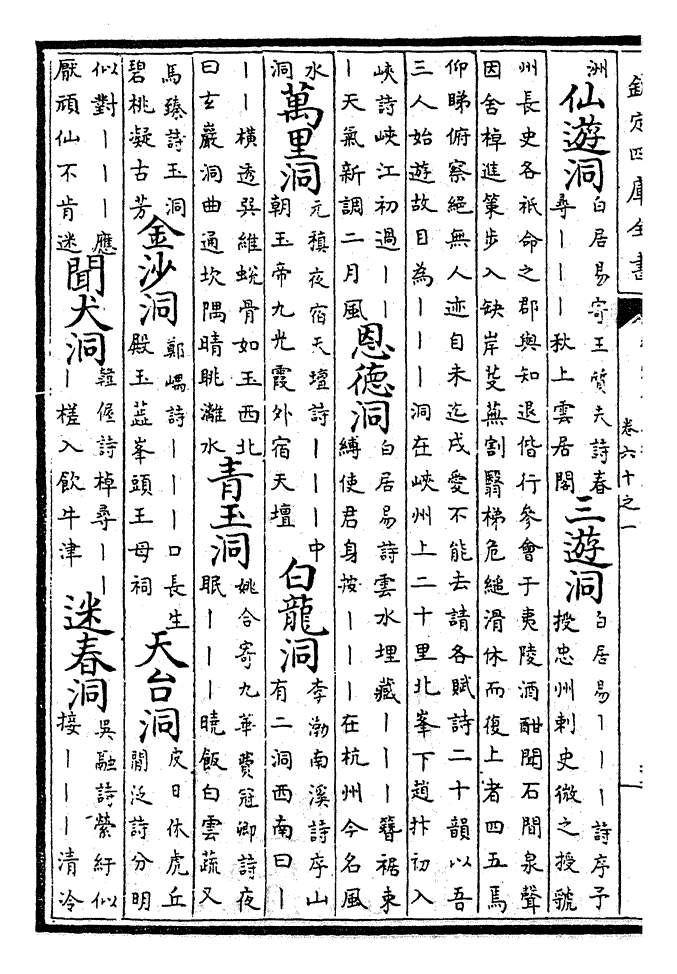 欽定四庫全書
卷六十之一
洲
仙遊洞
白居易寄王質夫詩春
尋｜｜｜秋上雲居閣
三遊洞
白居易｜｜｜詩序予
授忠州刺史微之授號
州長史各祇命之郡與知退偕行參會于夷陵酒酣聞石間泉聲
因舍棹進策步入缺岸芟蕪割翳梯危縋滑休而復上者四五焉
仰睇俯察絕無人迹自未迄戌愛不能去請各賦詩二十韻以吾
三人始遊故目為｜｜｜洞在峽州上二十里北峯下趙抃初入
峽詩峽江初過｜｜
｜天氣新調二月風
恩德洞
白居易詩雲水埋藏｜｜｜簪裾束
縛使君身按｜｜｜在杭州今名風
水
洞
萬里洞
元稹夜宿天壇詩｜｜｜中
朝玉帝九光霞外宿天壇
白龍洞
李渤南溪詩序山
有二洞西南曰｜
｜｜橫透巽維蛻骨如玉西北
曰玄巖洞曲通坎隅晴眺灕水
青玉洞
姚合寄九華費冠卿詩夜
眠｜｜｜曉飯白雲蔬又
馬臻詩玉洞
碧桃凝古芳
金沙洞
鄭嵎詩｜｜｜口長生
殿玉蕋峯頭王母祠
天台洞
皮日休虎丘
閒泛詩分明
似對｜｜｜應
厭頑仙不肯迷
聞犬洞
韓偓詩棹尋｜｜
｜槎入飲牛津
迷春洞
吳融詩縈紆似
接｜｜｜清泠